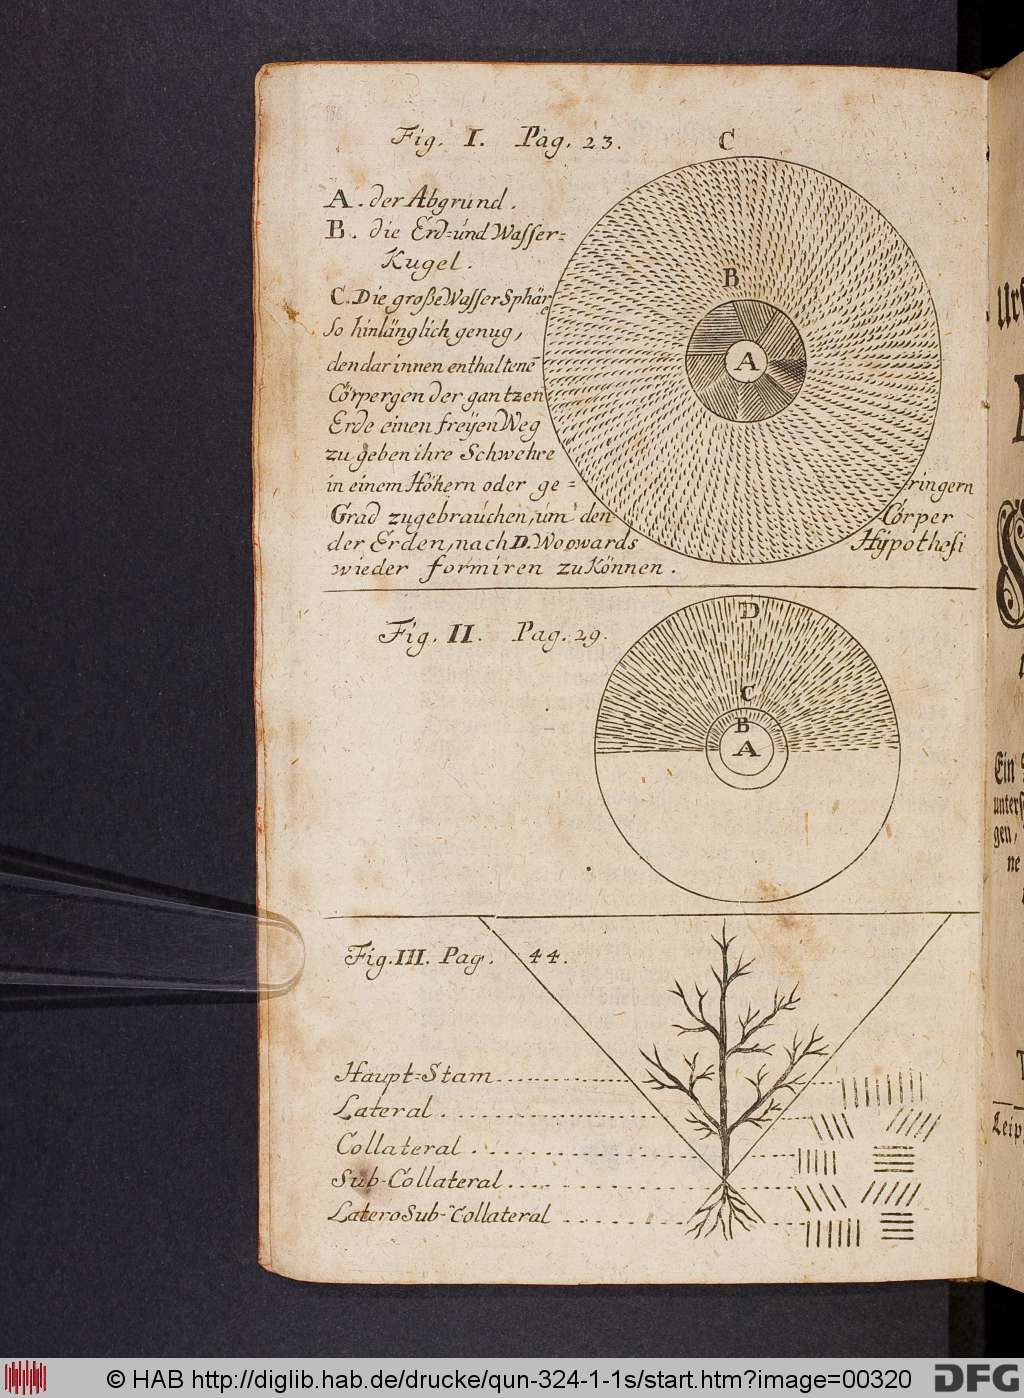 Fig. I. Pag. 23.
C
A. der Abgrund.
B. die Erd-und Wasser-
Kugel.
C. Die große Wasser Sphär
so hinlänglich genug,
den darinnen enthaltenē
Cörpergen der gantzen
Erde einen freÿen Weg
zu geben ihre Schwehre
in einem Höhern oder ge-ringern
Grad zugebrauchen, um den Cörper
der Erden, nach D. Woowards Hÿpothesi
wieder formiren zu Können.
B
A
Fig. II. Pag. 29.
D
C
B
A
Fig. III. Pag. 44.
Haupt-Stam
Lateral
Collateral
Sub-Collateral
Latero Sub-Collateral
Ein
unters
gen,
ne
Leip
© HAB http://diglib.hab.de/drucke/qun-324-1-1s/start.htm?image=00320
DFG